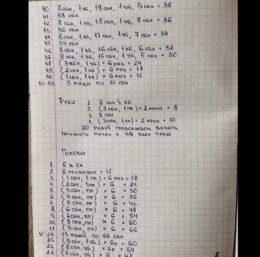 40. 8 сбн, 1 уб, 18 сбн, 1 уб, 9 сбн = 38
41. 38 сбн
42. 8 сбн, 1 уб, 18 сбн, 1 уб, 8 сбн = 36
43. 36 сбн
44. 8 сбн, 1 уб, 17 сбн, 1 уб, 7 сбн = 34
45. 34 сбн
46. 8 сбн, 1 уб, 16 сбн, 1 уб, 6 сбн = 32
47. 8 сбн, 1 уб, 15 сбн, 1 уб, 5 сбн = 30
48. (3 сбн, 1 уб) × 6 раз = 24
49. (2 сбн, 1 уб) × 6 раз = 18
50. (1 сбн, 1 уб) × 6 раз = 12
51-53 3 ряда по 12 сбн
Руки 1. 6 сбн в КА
2. (2 сбн, 1 пр) × 2 раза = 8
3. 8 сбн
4. (3 сбн, 1 пр) × 2 раза = 10
20 рядов продолжаем вязать
Голова:
1. 6 в КА
2. 6 прибавок = 12
3. (1 сбн, 1 пр) × 6 раз = 18
4. (2 сбн, 1 пр) × 6 = 24
5. (3 сбн, 1 пр) × 6 = 30
6. (4 сбн, 1 пр) × 6 = 36
7. (5 сбн, 1 пр) × 6 = 42
8. (6 сбн, 1 пр) × 6 = 48
9. (7 сбн, 1 пр) × 6 = 54
10. (8 сбн, 1 пр) × 6 = 60
11. (9 сбн, 1 пр) × 6 = 66
13 рядов по 66 сбн
25 (9 сбн, 1 уб) × 6р = 60
26 (8 сбн, 1 уб) × 6р = 54